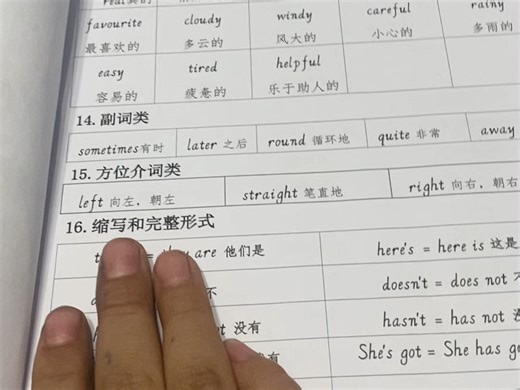 favourite cloudy windy careful rainy
最喜欢的 多云的 风大的 小心的 多雨的
easy tired helpful
容易的 疲惫的 乐于助人的
14. 副词类
sometimes有时 later 之后 round 循环地 quite 非常 away
15. 方位介词类
left 向左，朝左 straight 笔直地 right 向右，朝右
16. 缩写和完整形式
= they are 他们是 here's = here is 这是
不 doesn't = does not
没有 hasn't = has not
She's got = She has